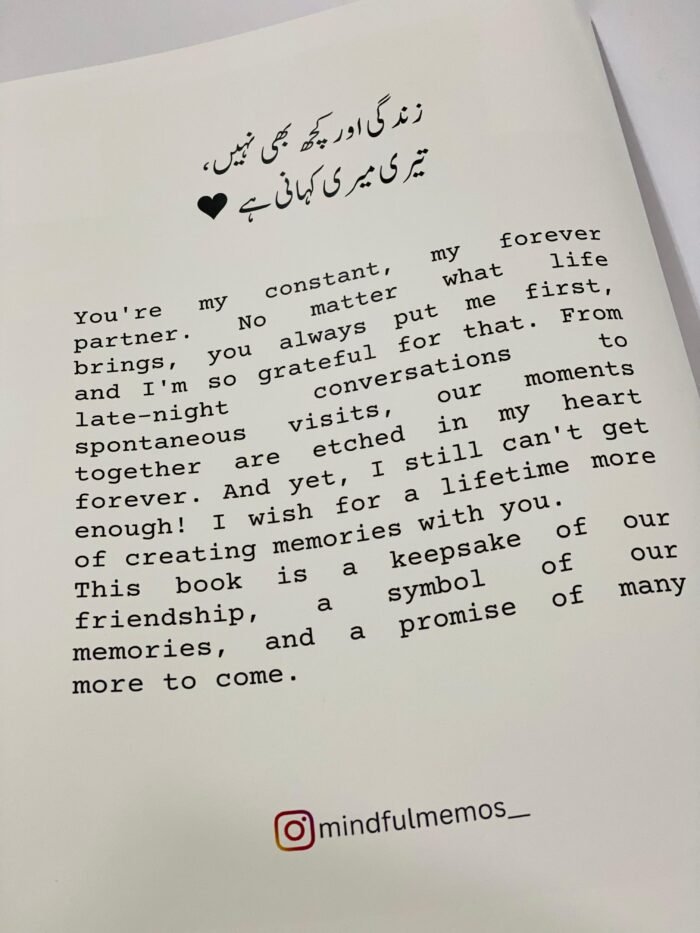 زندگی اور کچھ بھی نہیں،
تیری میری کہانی ہے ♥
You're my constant, my forever
partner. No matter what life
brings, you always put me first,
and I'm so grateful for that. From
late-night conversations to
spontaneous visits, our moments
together are etched in my heart
forever. And yet, I still can't get
enough! I wish for a lifetime more
of creating memories with you.
This book is a keepsake of our
friendship, a symbol of our
memories, and a promise of many
more to come.
mindfulmemos_